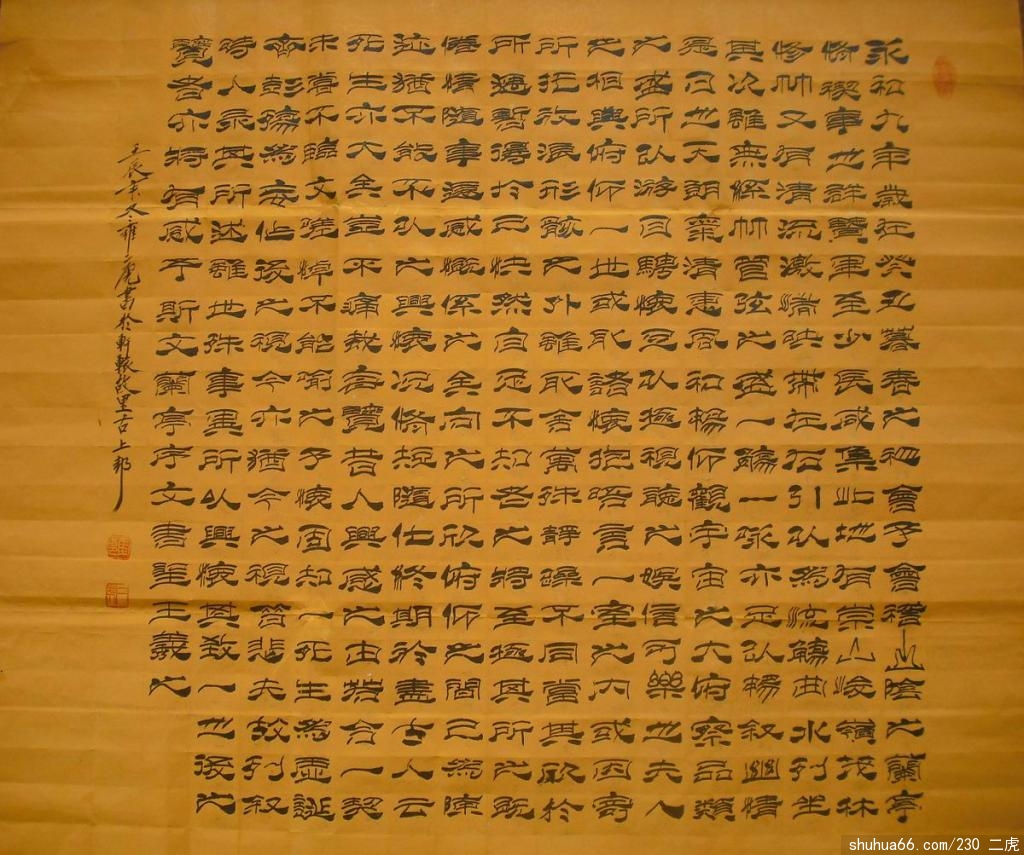 永和九年歲在癸丑暮春之初會于會稽山陰之蘭亭
脩禊事也群賢畢至少長咸集此地有崇山峻嶺茂林
修竹又有清流激湍映帶左右引以為流觴曲水列坐
其次雖無絲竹管弦之盛一觴一詠亦足以暢敘幽情
是日也天朗氣清惠風和暢仰觀宇宙之大俯察品類
之盛所以游目騁懷足以極視聽之娛信可樂也夫人
之相與俯仰一世或取諸懷抱悟言一室之內或因寄
所託放浪形骸之外雖取舍萬殊靜躁不同當其欣於
所遇暫得於己快然自足不知老之將至極其所之既
倦情隨事遷感慨係之矣向之所欣俯仰之間已為陳
迹猶不能不以之興懷況脩短隨化終期於盡古人云
死生亦大矣豈不痛哉每覽昔人興感之由若合一契
未嘗不臨文嗟悼不能喻之于懷固知一死生為虛誕
齊彭殤為妄作後之視今亦猶今之視昔悲夫故列敘
時人录其所述雖世殊事異所以興懷其致一也後之
覽者亦將有感于斯文蘭亭序文書聖王羲之
壬辰年冬雍二虎書於軒轅故里古上邽
shuhua66.com/230 二虎